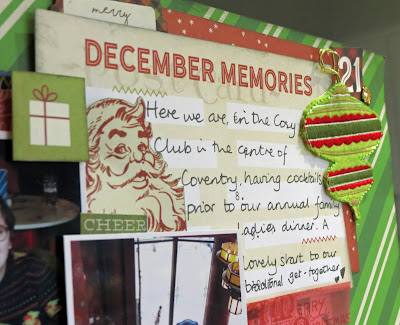 merry
DECEMBER MEMORIES
21
Here we are, in the Cosy
Club in the centre of
Coventry, having cocktails
prior to our annual family
ladies dinner. A
lovely start to our
traditional get-together
CHEER
MERRY